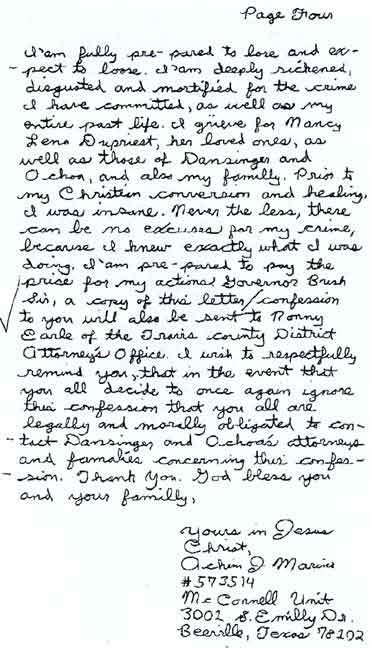 Page Four
I am fully pre-pared to lose and ex-
pect to loose. I am deeply sickened,
disgusted and mortified for the crime
I have committed, as well as my
entire past life. I grieve for Nancy
Lena Dupriest, her loved ones, as
well as those of Dansinger and
Ochoa, and also my familly. Prior to
my Christian conversion and healing,
I was insane. Never the less, there
can be no excuses for my crime,
because I knew exactly what I was
doing. I am pre-pared to pay the
prise for my actions! Governor Brush
Sir, a copy of this letter/confession
to you will also be sent to Ronny
Earle of the Travis county District
Attorney's Office. I wish to respectfully
remind you, that in the event that
you all decide to once again ignore
this confession that you all are
legally and morally obligated to con-
tact Dansinger and Ochoa's attorneys
and familes concerning this confes-
sion. Thank You. God bless you
and your familly,
Yours in Jesus
Christ,
Achim J. Marino
#573514
McConnell Unit
3001 S. Emilly Dr.
Beeville, Texas 78102